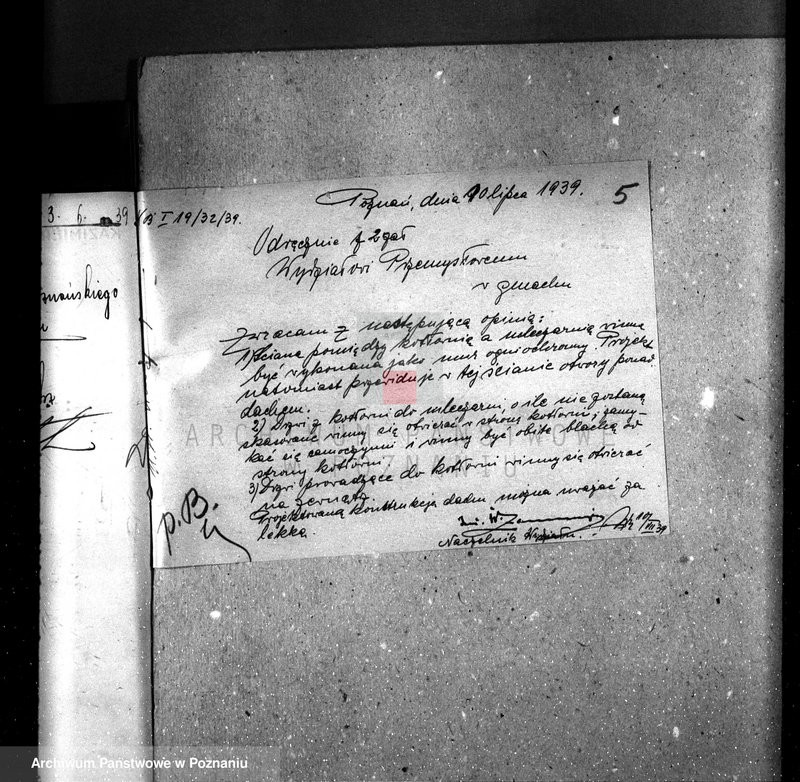 3. 6. 39
znańskiego
Poznań, dnia 10 lipca 1939.
5
B I 19/32/39.
Odręcznie z 2 zał
Wydziałowi Przemysłowemu
w gmachu
Zwracam z następującą opinią:
1) Ściana pomiędzy kotłownią a mleczarnią winna
być wykonana jako mur ogniochronny. Projekt
natomiast przewiduje w tej ścianie otwory ponad
dachem.
2) Drzwi z kotłowni do mleczarni, o ile nie zostaną
skasowane winny się otwierać w stronę kotłowni, zamy-
kać się samoczynnie i winny być obite blachą od
strony kotłowni.
3) Drzwi prowadzące do kotłowni winny się otwierać
na zewnątrz.
Projektowaną konstrukcję dachu można uważać za
lekką.
inż. W.
Naczelnik Wydziału.
10/VII 39
p. B.
ARCHIWUM PAŃSTWOWE
W POZNANIU
Archiwum Państwowe w Poznaniu